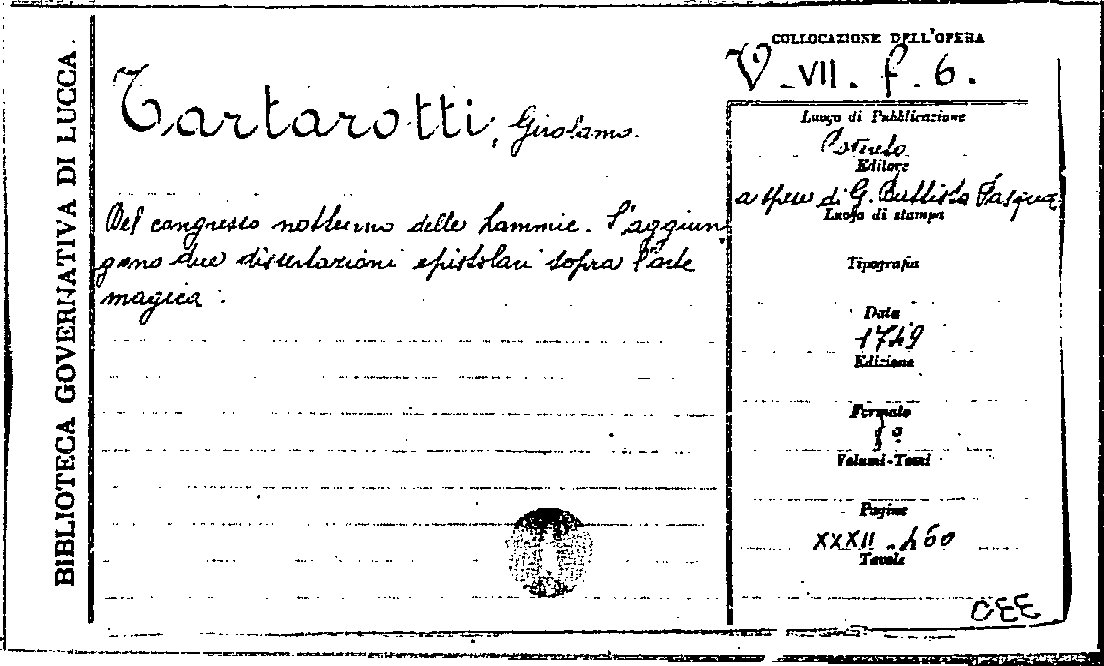 BIBLIOTECA GOVERNATIVA DI LUCCA.
COLLOCAZIONE DELL'OPERA
V. VII. f. 6.
Tartarotti, Girolamo.
Del congresso notturno delle Lammie. S'aggiun
gono due dissertazioni epistolari sopra l'arte
magica.
Luogo di Pubblicazione
Editore
a spese di G. Battista Pasqua
Luogo di stampa
Tipografia
Data
1749
Edizione
Formato
Volumi-Tomi
Pagine
XXXII - 460
Tavole
CEE